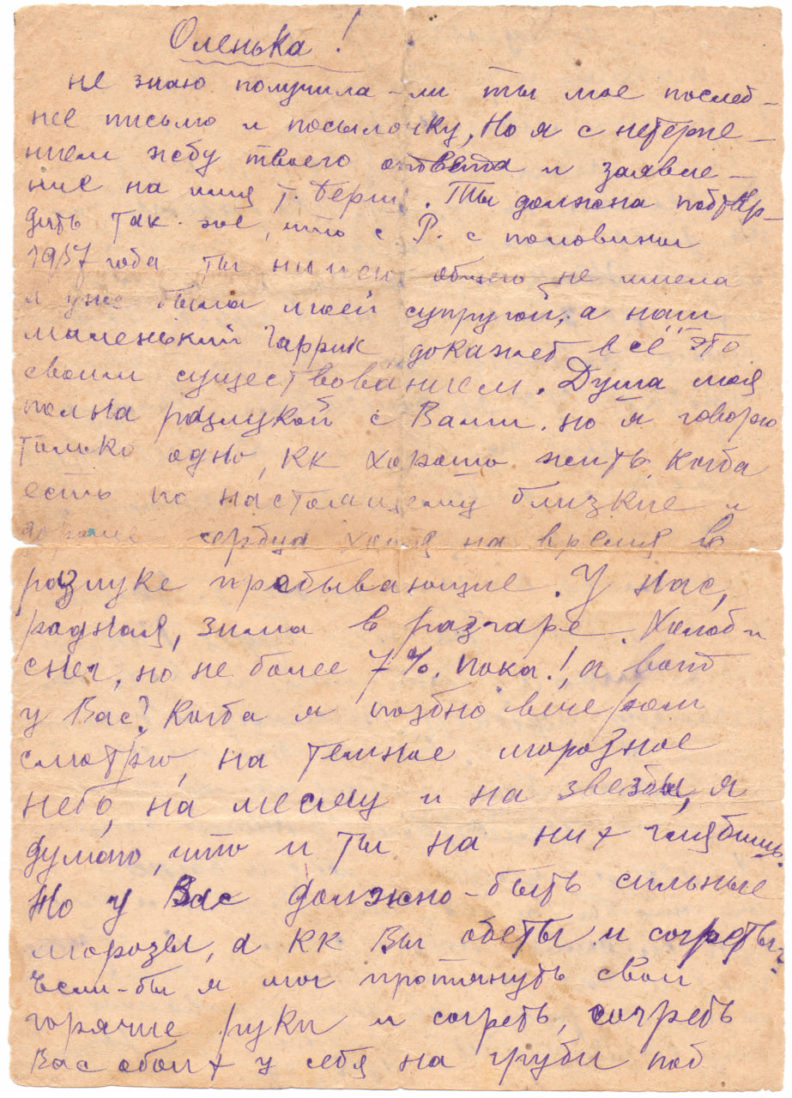 Оленька!
не знаю получила-ли ты мое послед-
нее письмо и посылочку, Но я с нетерпе-
нием жду твоего ответа и заявле-
ние на имя т. Берии. Ты должна подтвер-
дить так-же, что с Р. с половины
1937 года ты ничего общего не имела
и уже была моей супругой, а наш
маленький Гаррик докажет "всё" это
своим существованием. Душа моя
полна разлукой с Вами. но я говорю
только одно, кк хорошо жить, когда
есть по настоящему близкие и
сердца хотя на время в
разлуке пребывающие. У нас,
родная, зима в разгаре. Холод и
снег, но не более 7%. пока!, а вот
у Вас? Когда я поздно вечером
смотрю, на темное морозное
небо, на месяц и на звезды, я
думаю, что и ты на них глядишь.
Но у Вас должно-быть сильные
морозы, а кк Вы одеты и согреты?
Если-бы я мог протянуть свои
горячие руки и согреть, согреть
Вас обоих у себя на груди под